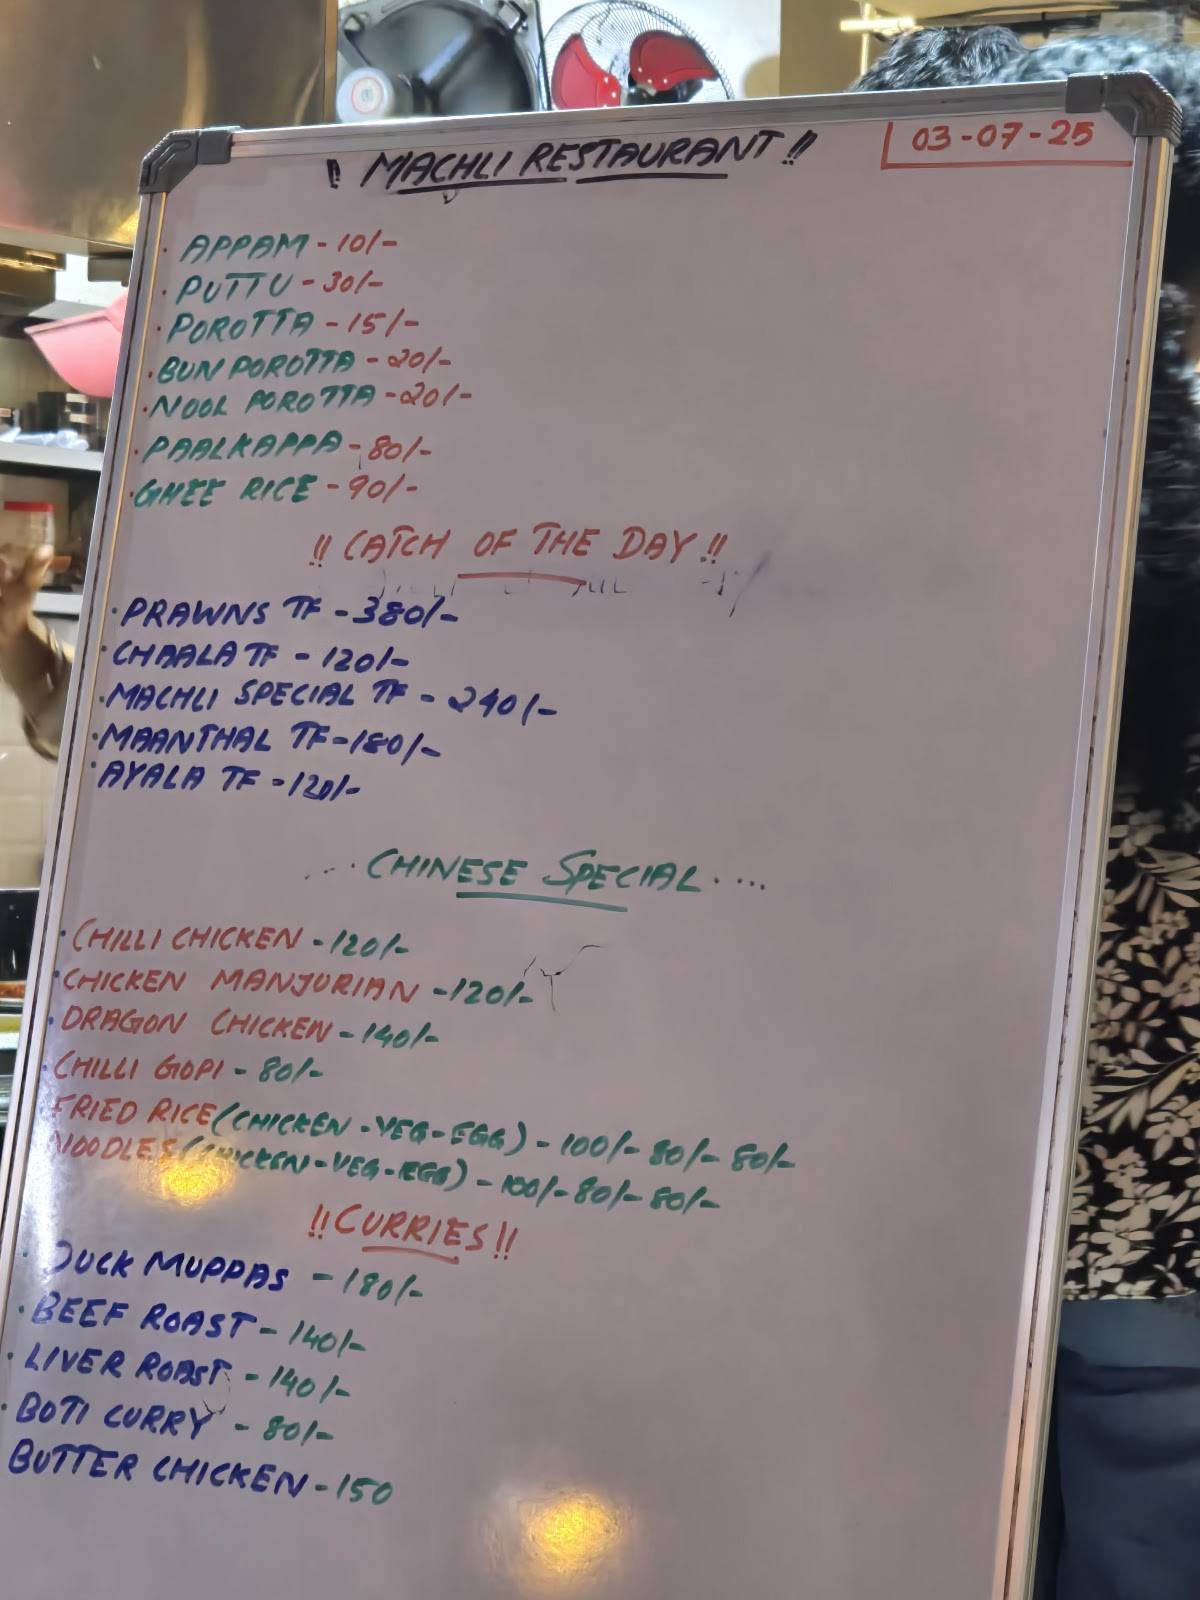 !! MACHLI RESTAURANT !!
03-07-25
. APPAM - 10/-
. PUTTU - 30/-
. POROTTA - 15/-
. BUN POROTTA - 20/-
. NOOL POROTTA - 20/-
. PAALKAPPA - 80/-
. GHEE RICE - 90/-
!! CATCH OF THE DAY !!
. PRAWNS TF - 380/-
. CHAALA TF - 120/-
. MACHLI SPECIAL TF - 240/-
. MAANTHAL TF - 180/-
. AYALA TF - 120/-
... CHINESE SPECIAL ....
. CHILLI CHICKEN - 120/-
. CHICKEN MANJURIAN - 120/-
. DRAGON CHICKEN - 140/-
. CHILLI GOPI - 80/-
FRIED RICE (CHICKEN - VEG - EGG) - 100/- 80/- 80/-
NOODLES (CHICKEN - VEG - EGG) - 100/- 80/- 80/-
!! CURRIES !!
. DUCK MUPPAS - 180/-
. BEEF ROAST - 140/-
. LIVER ROAST - 140/-
. BOTI CURRY - 80/-
BUTTER CHICKEN - 150